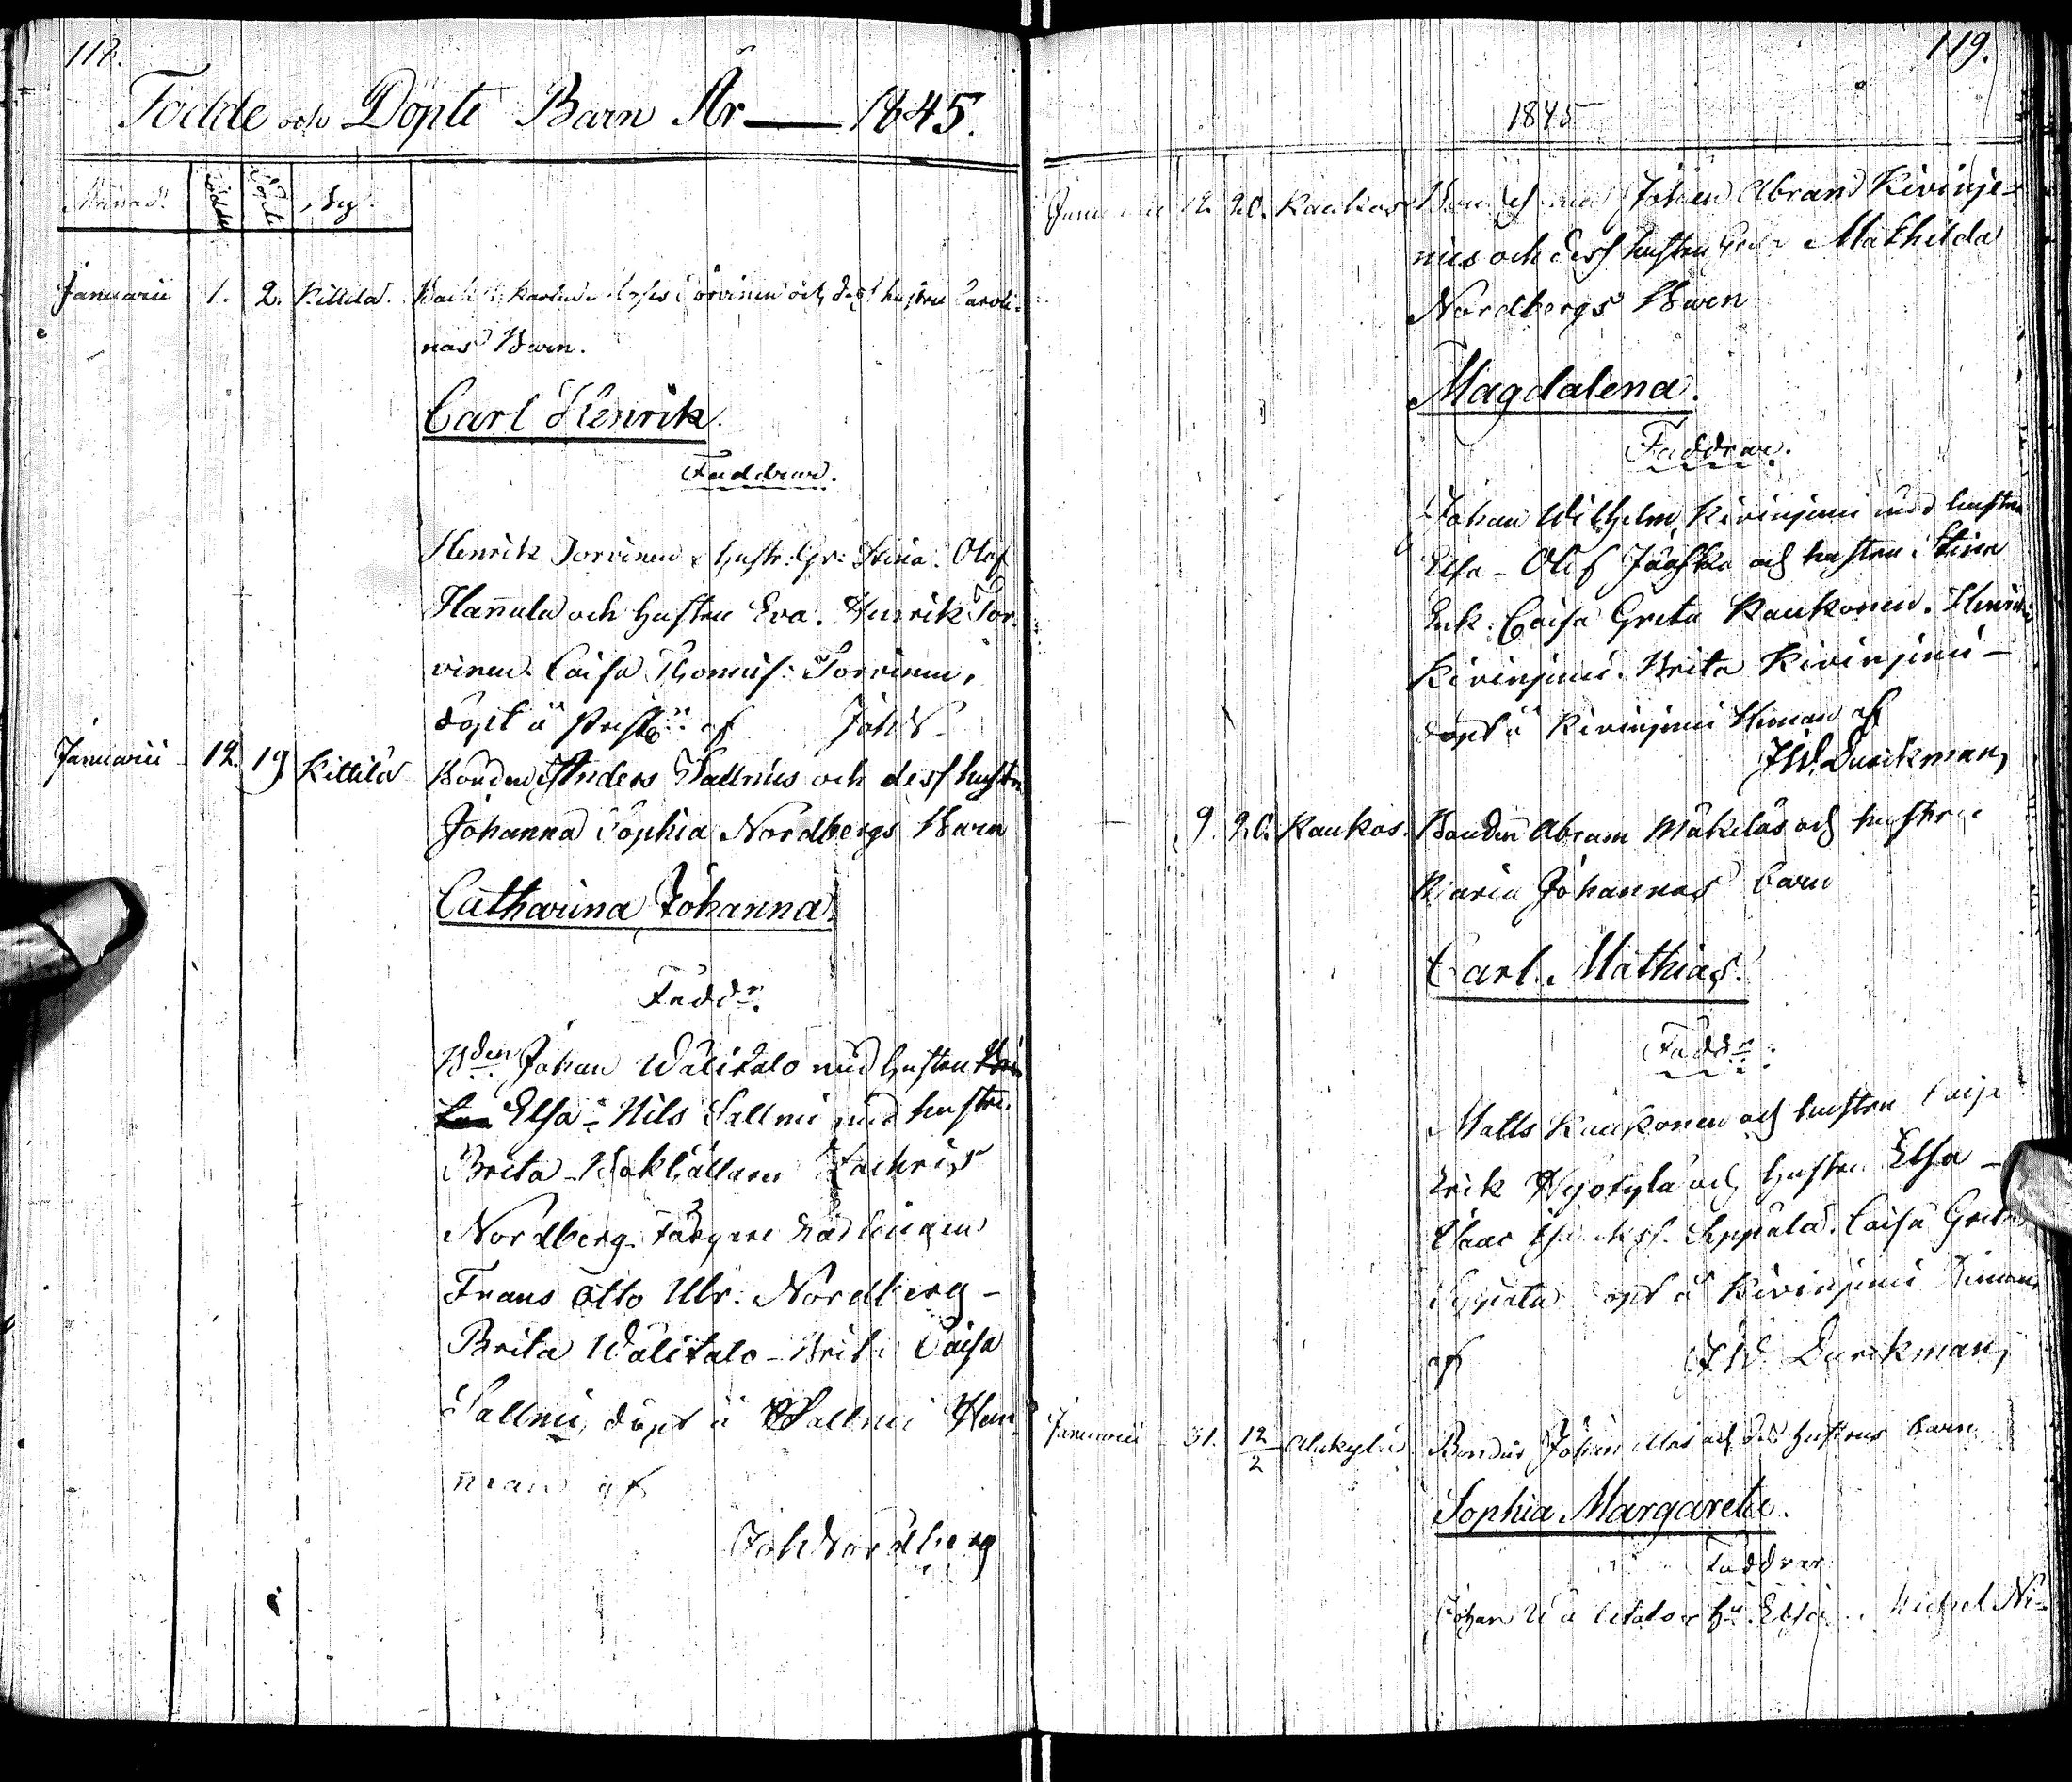 118.
Födde och Döpte Barn År — 1845.
Månad. Födde Döpte By.
Januarii 1. 2. Kittilä. Torvinen och dess hustru Caroli-
nas Barn.
Carl Henrik.
Faddrar.
Henrik Torvinen hustr: Gr: Stina. Olof
Hannula och hustru Eva. Henrik Tor-
vinen. Caisa Thomæ: Torvinen,
döpt å af Joh N
Januarii 12. 19 Kittilä Bonden Anders Sallmis och dess hustru
Johanna Sophia Nordbergs Barn
Catharina Johanna
Fadd:r
Bden Johan Wälitalo med hustru
Elsa - Nils Sallmi med hustru
Brita - Zachris
Nordberg
Frans Otto Ulr: Nordberg -
Brita Wälitalo - Brita Caisa
Sallmi, döpt å Sallmi Hem-
man af
Joh Nordberg
119.
1845
Januarii 12. 20. Kaukos Johan Abram Kivinje-
mis och dess hustru Mathilda
Nordbergs Barn
Magdalena.
Faddrar.
Johan Wilhelm Kivinjemi med hustru
Elsa - Olof Jääskö och hustru Stina
Enk: Caisa Greta Kaukonen. Henrik
Kivinjemi. Brita Kivinjemi -
döpt å Kivinjemi Heman af
J W. Durckman,
9. 20. Kaukos. Bonden Abram Mäkeläs och hustru
Maria Johannas barn
Carl Mathias.
Fadd:r
Matts Kaukonen och hustru Caisa
Erik Hyötylä och hustru Elsa -
Isaac Seppälä. Caisa Greta
Seppälä döpt å Kivinjemi Heman
af J W. Durckman,
Januarii 31. 12/2 Alakylä Bondens Johan och des hustrus barn
Sophia Margareta.
Faddrar
Johan Wälitalo Hu Elsa. Michel Ni-